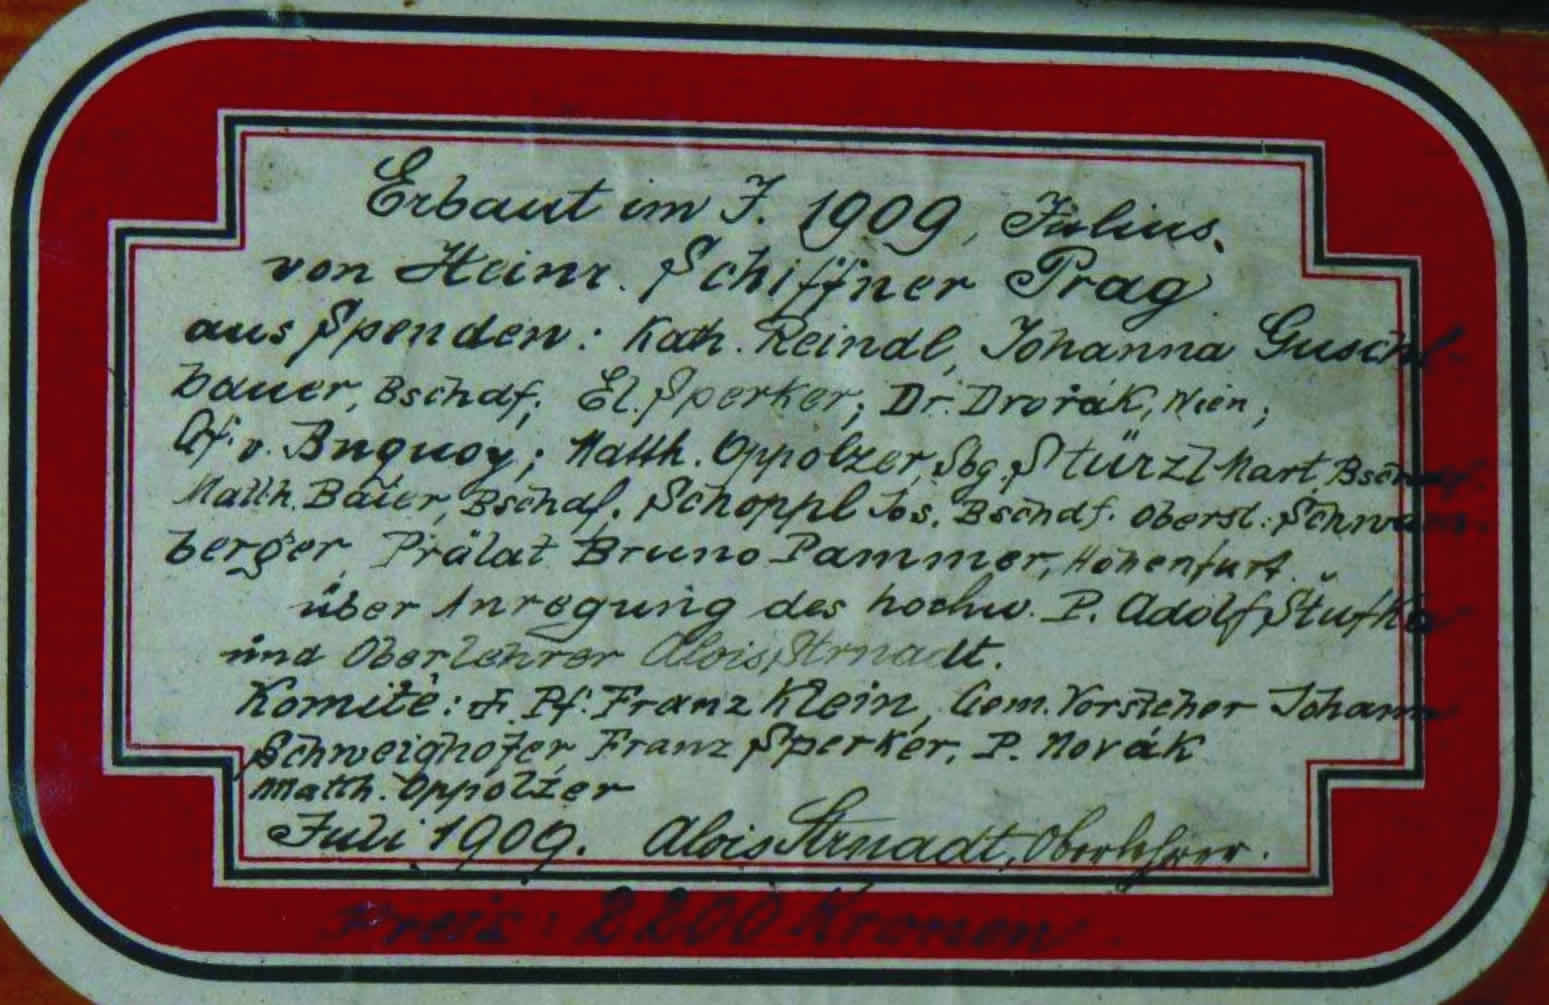 Erbaut im J. 1909, Julius.
von Heinr. Schiffner Prag
aus Spenden: Kath. Reindl, Johanna Guschl-
bauer, Bschdf; El. Sperker; Dr. Dvořák, Wien;
Gf. v. Buquoy; Matth. Oppolzer, Sbg. Stürzl Mart Bschdf.
Matth. Baier, Bschdf. Schoppl Jos. Bschdf. Oberst.
berger, Prälat Bruno Pammer, Hohenfurt.
über Anregung des hochw. P. Adolf Štufka
und Oberlehrer Alois Strnadt.
Komitè: Pf. Franz Klein, Gem. Vorsteher Johann
Schweighofer, Franz Sperker, P. Novák
Matth. Oppolzer
Juli 1909. Alois Strnadt, Oberlehrer.
Preis: 2200 Kronen.